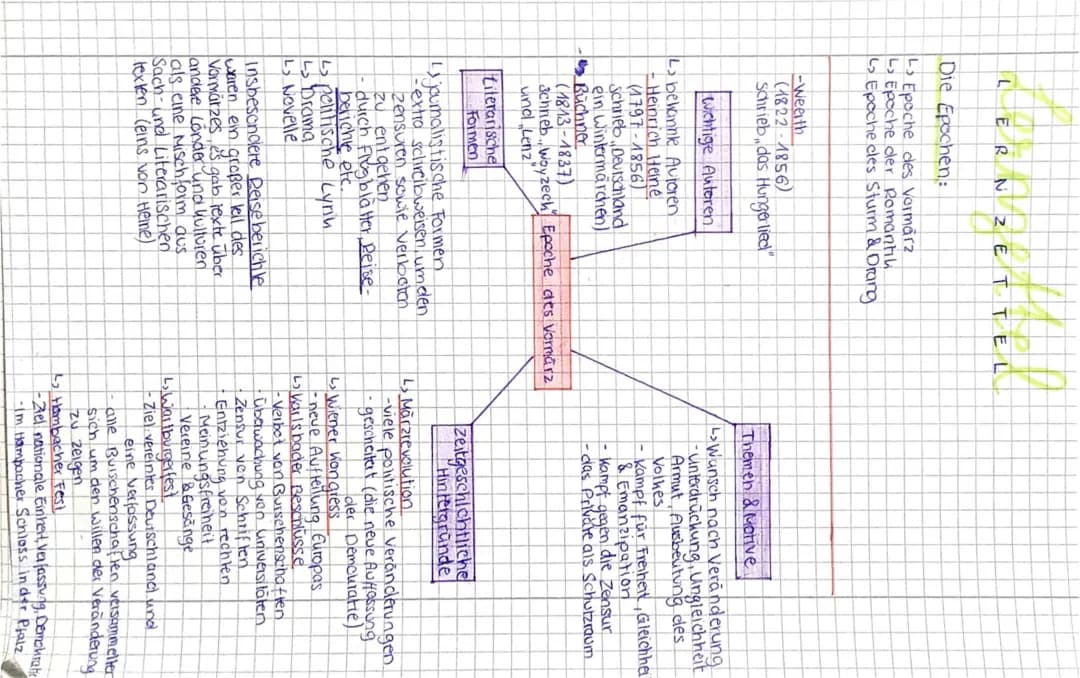 Lernzettel
LERNZETTEL
Die Epochen:
↳ Epoche des Vormärz
↳ Epoche der Romantik
↳ Epoche des Sturm & Drang
Epoche des Vormärz
wichtige Autoren
↳ bekannte Autoren
- Heinrich Heine
(1797-1856)
schrieb „Deutschland
ein Wintermärchen)
- Büchner
(1813-1837)
schrieb „Woyzeck"
und „Lenz"
- Weerth
(1822-1856)
schrieb „das Hungerlied"
Themen & Motive
↳ Wunsch nach Veränderung
- unterdrückung, Ungleichheit
Armut, Ausbeutung des
Volkes
- Kampf für Freiheit, Gleichhei
& Emanzipation
- Kampf gegen die Zensur
- das Private als Schutzraum
literarische
Formen
↳ journalistische Formen
- extra schreibweisen, um den
zensuren sowie Verboten
zu entgehen
- durch Flugblätter, Reise-
berichte etc.
↳ politische Lyrik
↳ Drama
↳ Novelle
Insbesondere Reiseberichte
waren ein großer teil des
Vormärzes, es gab texte über
andere Länder und kulturen
als eine Mischform aus
Sach- und Literarischen
texten (eins von Heine)
zeitgeschichtliche
Hintergründe
↳ Märzrevolution
- viele politische Veränderungen
- gescheitert (die neue Auffassung
der Demokratie)
↳ Wiener Kongress
- neue Aufteilung Europas
↳ Karlsbader Beschlüsse
- Verbot von Burschenschaften
- Überwachung von universitäten
- Zensur von Schriften
- Entziehung von rechten
- Meinungsfreiheit
Vereine & Gesänge
↳ Wartburgfest
- Ziel: vereintes Deutschland und
eine Verfassung
- alle Burschenschaften versammelten
sich um den willen der Veränderung
zu zeigen
↳ Hambacher Fest
- Ziel nationale Einheit, Verfassung, Demokratie
- Im Hampacher Schloss in der Pfalz